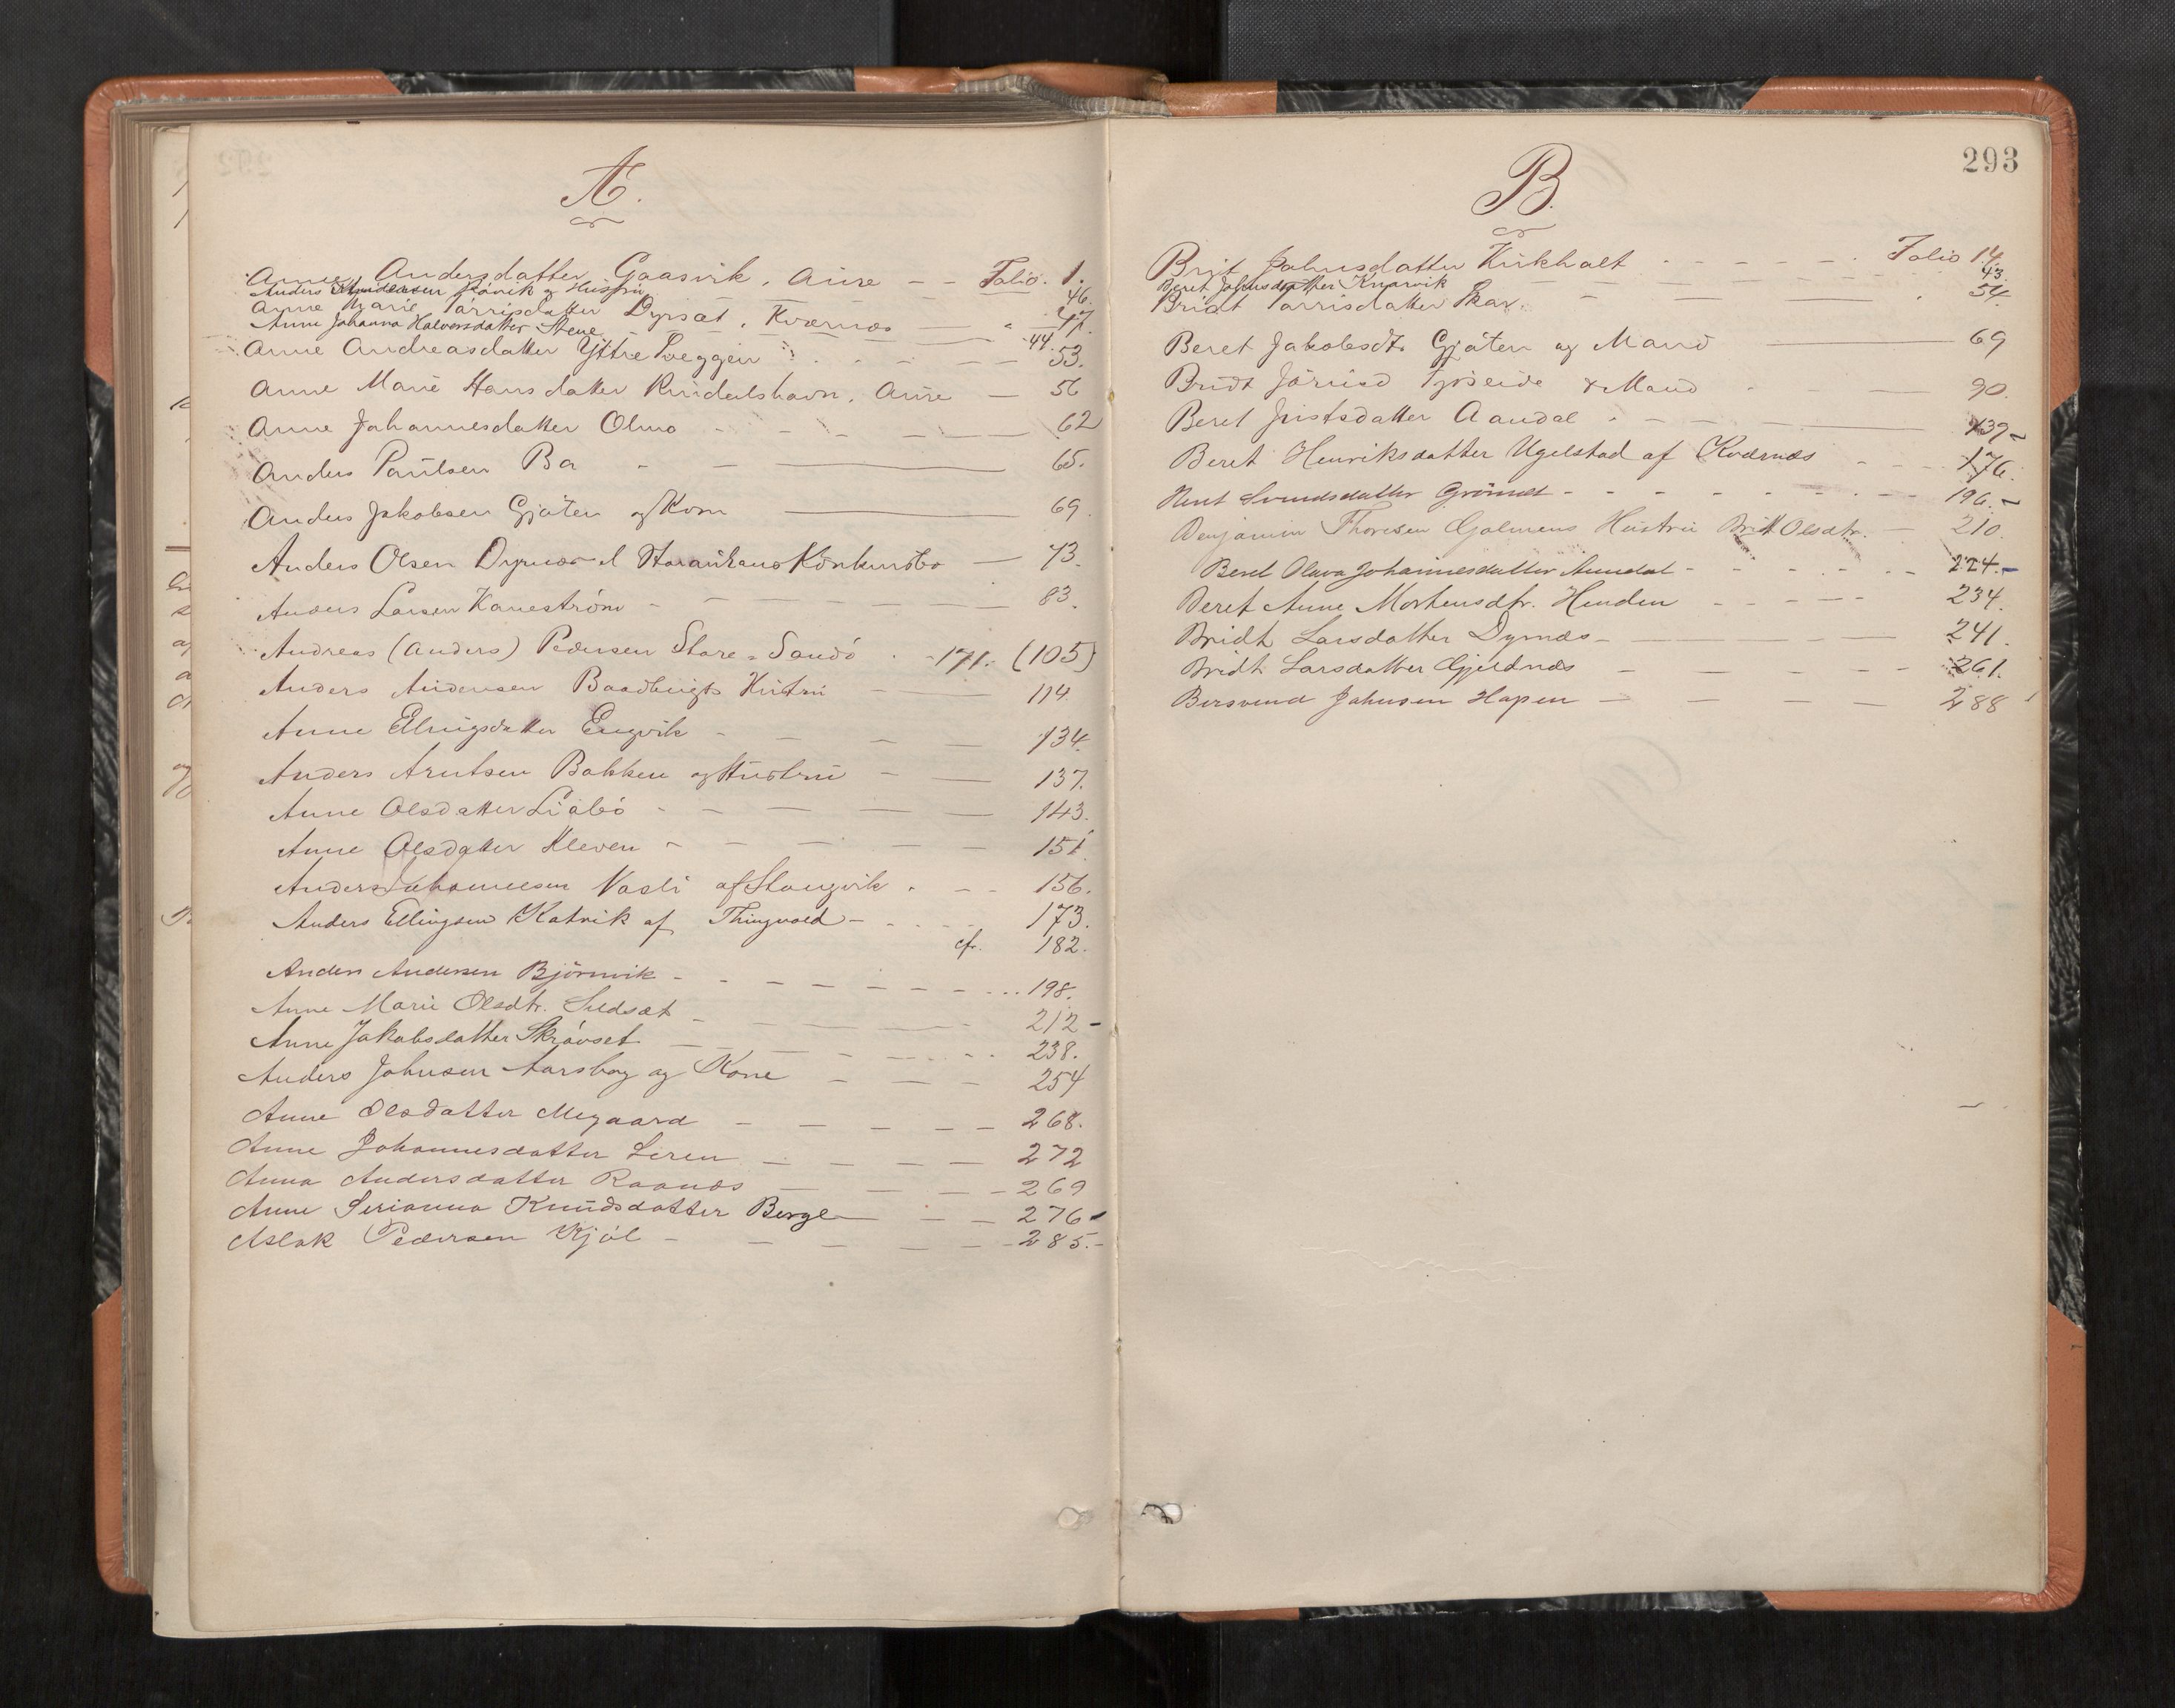 A.
Anne Andersdatter Gaasvik, Aure - - Folio. 1.
Anders Knudsen Stövik og Hustru 46.
Anne Marie Tarrisdatter Dyrsæt, Kværnæs - 47.
Anne Johanna Halvorsdatter Stene 44
Anne Andreasdatter Yttre Sveggen - 53.
Anne Marie Hansdatter Rindalshavn, Aure - 56
Anne Johannesdatter Olmo - - - 62
Anders Paulsen Ba - - 65.
Anders Jakobsen Gjöten og Kone 69.
Anders Olsen Dyrnæs Konkursbo - 73.
Anders Larsen Kaneström - 83.
Andreas (Anders) Pedersen Store-Sandö . - 171. (105)
Anders Andersen Baadbugts Hustru - 114.
Anne Ellingsdatter Engvik - - - 134.
Anders Arntsen Bakken og Hustru - 137.
Anne Olsdatter Liabö - - - 143.
Anne Olsdatter Kleven - - - 151.
Anders Johannessen Vasli af Stangvik . - - 156.
Anders Ellingsen Katvik af Thingvold - 173.
cfr. 182.
Anders Andersen Björnvik - 198.
Anne Marie Olsdtr. Sildsæt - 212 -
Anne Jakobsdatter Skrövset - 238.
Anders Johnsen Aarsbog og Kone - - - 254
Anne Olsdatter Megaard - - - 268.
Anne Johannesdatter Leren - - - 272
Anna Andersdatter Raanæs - - - 269
Anne Serianna Knudsdatter Berge - - 276 -
Aslak Pedersen Kjöl - - - 285. -
293
B.
Brit Johnsdatter Kirkholt - - - Folio 14.
Beret Johnsdatter Knarvik 43.
Bridt Tarrisdatter Skar. - 54.
Beret Jakobsdtr Gjöten og Mand 69
Bridt Mand - 90.
Beret datter Aandal . - 139 -
Beret Henriksdatter Ugelstad af Kværnæs - 176.
Svendsdatter Grönnes - - - 196. -
Benjamin Thoresen Golmens Hustru Brit Olsdtr. - 210.
Beret Olava Johannesdatter Aandal - - - 224. -
Beret Anne Mortensdtr. Henden - - - 234.
Bridt Larsdatter Dyrnæs - - - 241.
Bridt Larsdatter Gjeldnæs - - - 261.
Bersvend Johnsen Hopen - - - 288